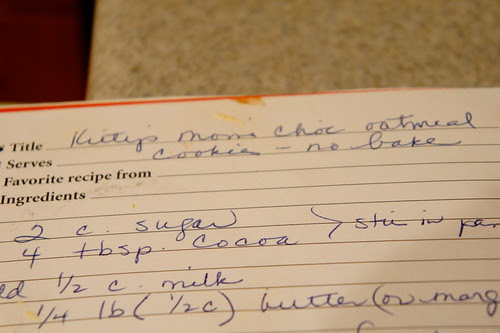 Title Kitty's moms choc oatmeal
Serves cookies - no bake
Favorite recipe from
Ingredients
2 c. sugar
4 tbsp. cocoa > stir in pan
1/2 c. milk
1/4 lb (1/2 c) butter (or marg